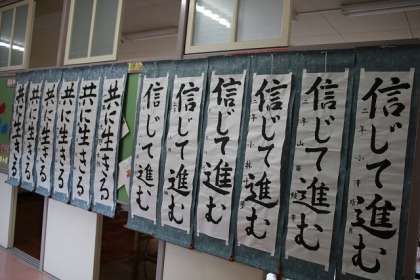 共に生きる
共に生きる
共に生きる
共に生きる
共に生きる
共に生きる
信じて進む
信じて進む
信じて進む
信じて進む
信じて進む
信じて進む